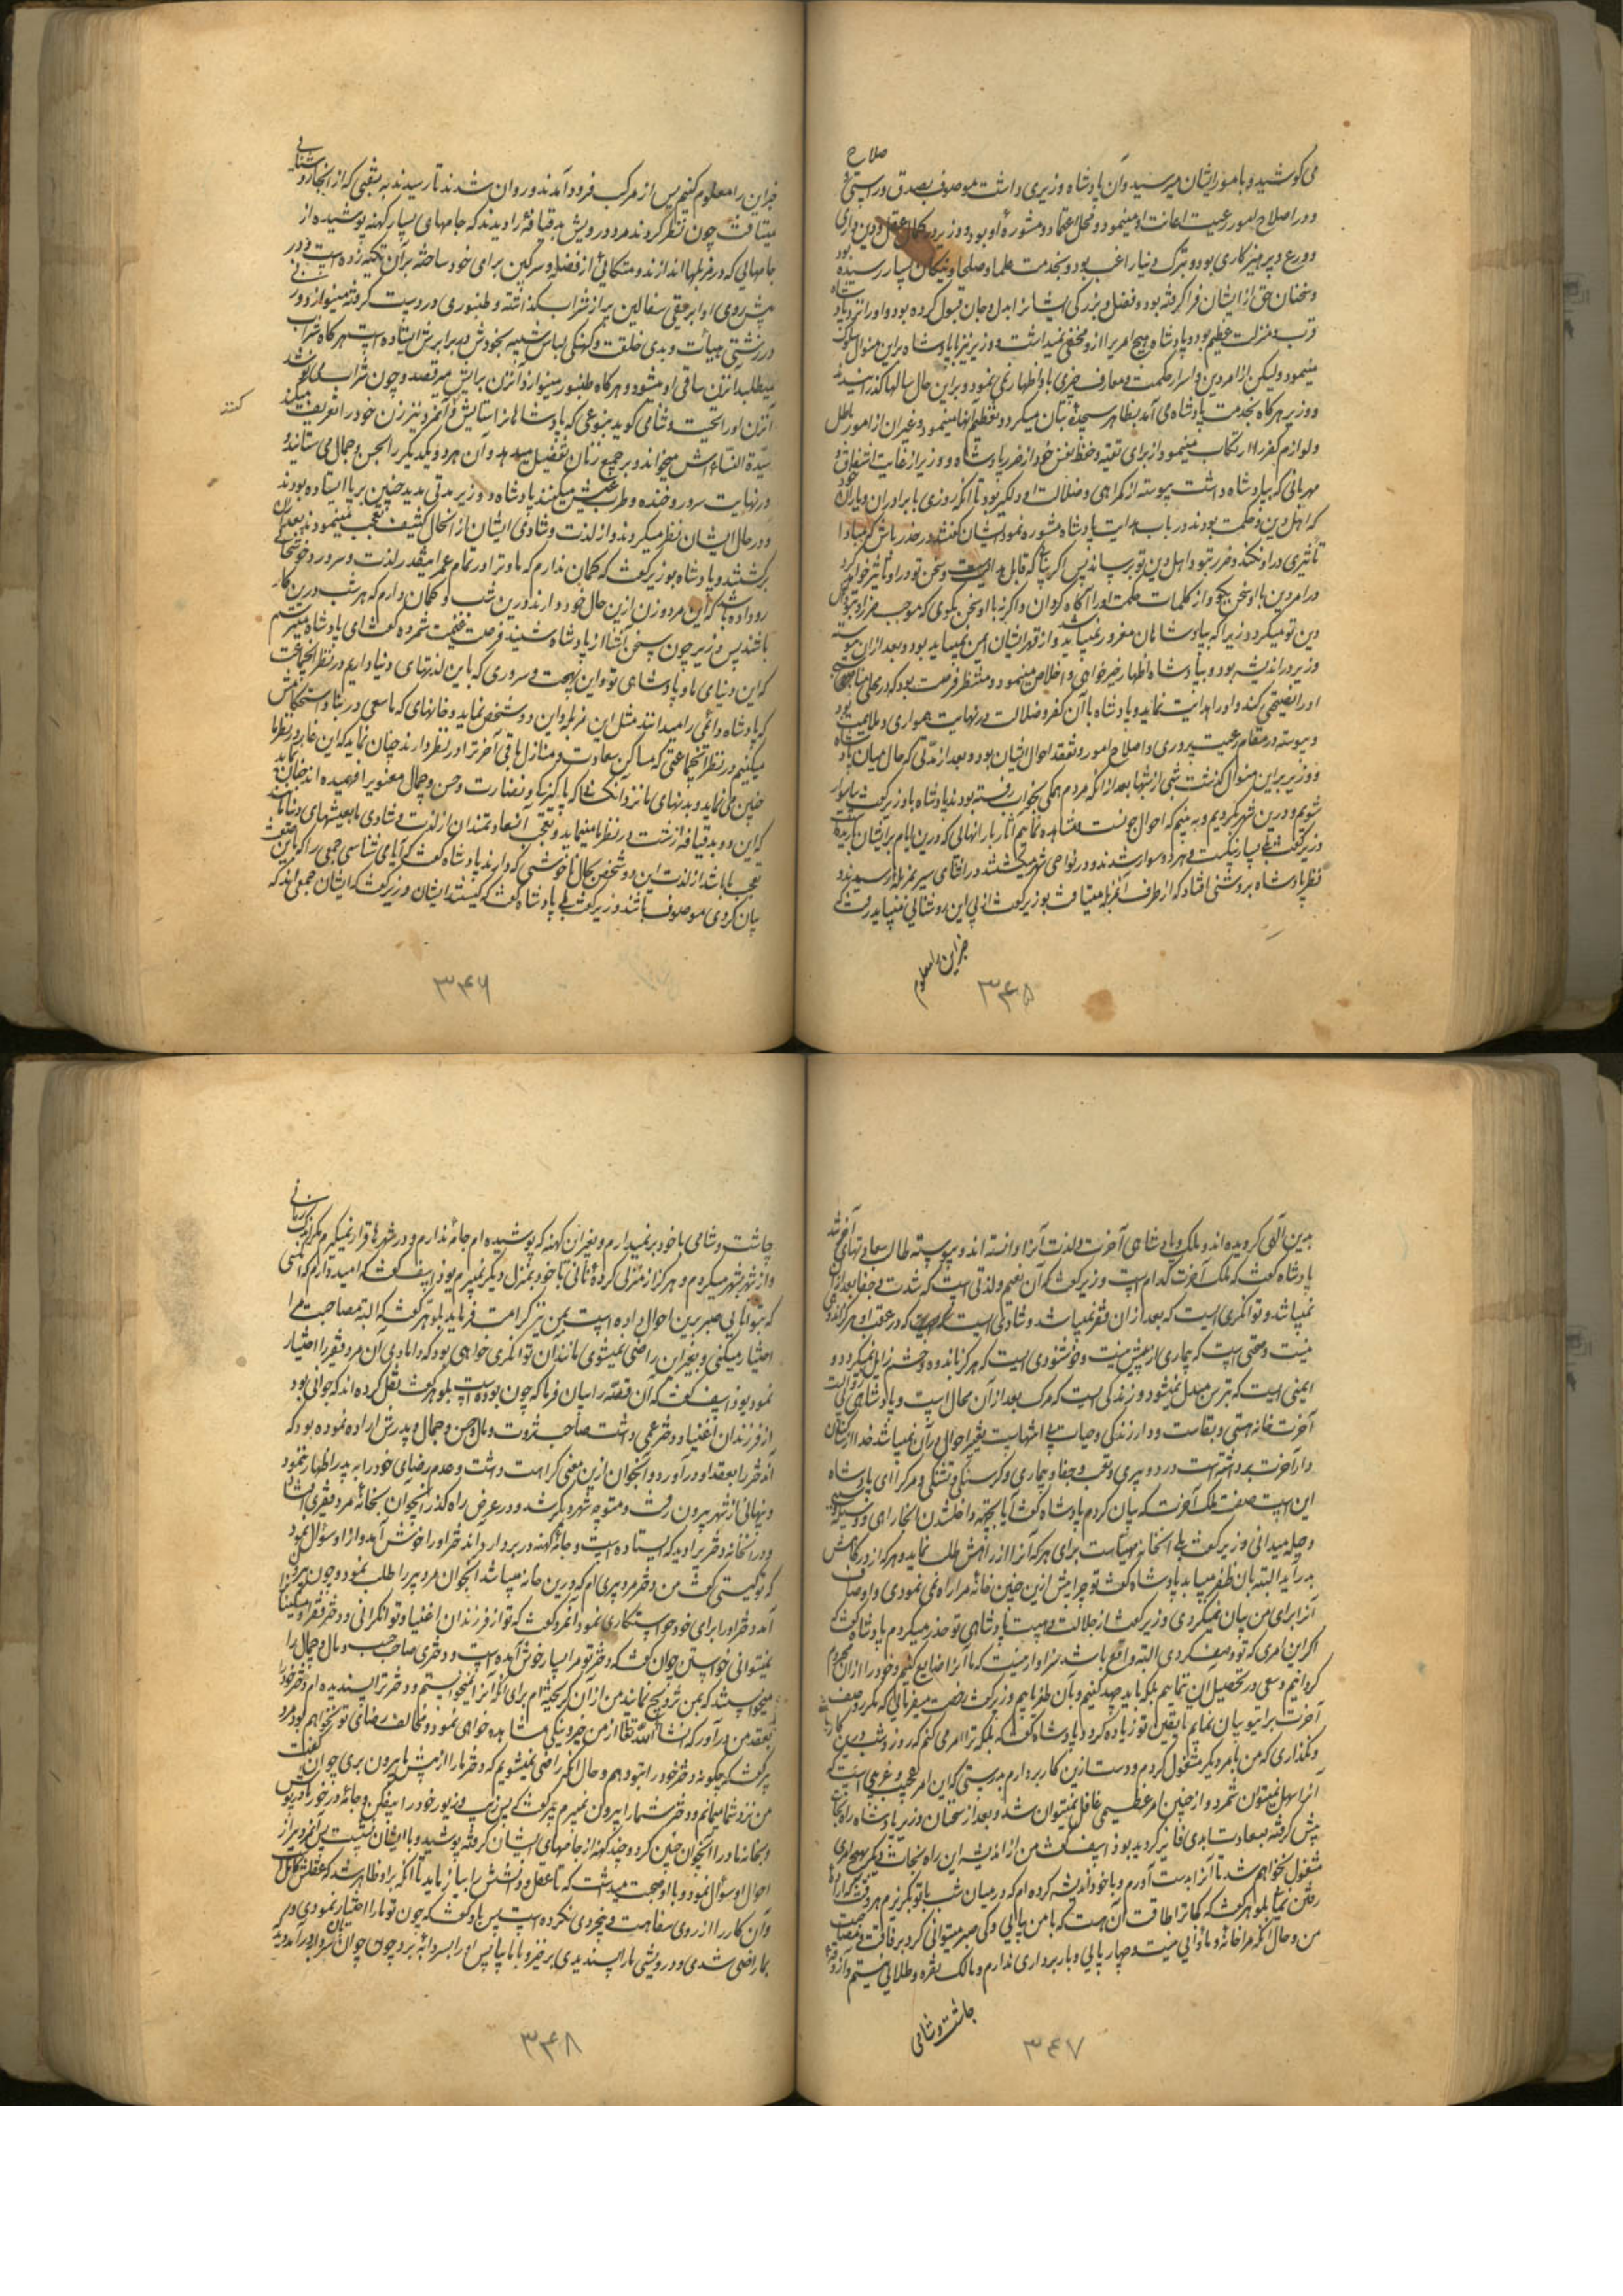 می کوشید و بامور ایشان میرسید و آن پادشاه وزیری داشت موصوف بصدق و راستی و صلاح
و در اصلاح امور رعیت اعانت او مینمود و محل اعتماد و مشوره او بود و وزیر در کمال عقل و دین داری
و ورع و پرهیزکاری بود و بترک دنیا راغب بود و بخدمت علما و صلحا و نیکان بسیار رسیده بود
و سخنان حق از ایشان فرا گرفته بود و فضل و بزرگی ایشانرا بدل و جان قبول کرده بود و او را نزد پادشاه
قرب و منزلت عظیم بود و پادشاه هیچ امریرا ازو مخفی نمیداشت و وزیر نیز با پادشاه برین منوال سلوک
مینمود ولیکن از امر دین و اسرار حکمت و معارف چیزی باو اظهار نمی نمود و برین حال سالها گذرانیدند
و وزیر هرگاه بخدمت پادشاه می آمد بظاهر سجده بتان میکرد و تعظیم آنها مینمود و غیر آن از امور باطل
و لوازم کفر را ارتکاب مینمود از برای تقیه و حفظ نفس خود از ضرر پادشاه و وزیر از غایت اشفاق و
مهربانی که بپادشاه داشت پیوسته از گمراهی و ضلالت او دلگیر بود تا آنکه روزی با برادران و یاران خود
که اهل دین و حکمت بودند در باب هدایت پادشاه مشوره نمود ایشان گفتند در حذر باش که مبادا
تأثیری در او نکند و ضرر بتو و اهل دین تو برساند پس اگر بیابی که قابل هدایت هست و سخن تو در او تأثیر خواهد کرد
در امر دین با او سخن بگو و از کلمات حکمت او را آگاه گردان و اگرنه با او سخن مگوی که موجب ضرر او بتو و اهل
دین تو میگردد زیرا که بپادشاهان مغرور نمیباید شد و از قهر ایشان ایمن نمیباید بود و بعد از آن پیوسته
وزیر در اندیشه بود و بپادشاه اظهار خیرخواهی و اخلاص مینمود و منتظر فرصت بود که در محل مناسبی
او را نصیحتی کند و او را هدایت نماید و پادشاه با آن کفر و ضلالت در نهایت همواری و ملایمت بود
و پیوسته در مقام رعیت پروری و اصلاح امور و تفقد احوال ایشان بود و بعد از مدتی که حال میان پادشاه
و وزیر برین منوال گذشت شبی از شبها بعد از آنکه مردم همگی بخواب رفته بودند پادشاه با وزیر گفت بیا سوار
شویم و درین شهر بگردیم و ببینیم که احوال مردم چونست و مشاهده نمائیم آثار بارانهائی که درین ایام بر ایشان باریده
وزیر گفت بلی بسیار نیکست و هر دو سوار شدند و در نواحی شهر میگشتند در اثنای سیر بمزبله رسیدند و
نظر پادشاه بروشنی افتاد که از طرف آن مزبله میتافت بوزیر گفت از پی این روشنائی میباید رفت که
خبر این را معلوم
۳۴۵
خبر این را معلوم کنیم پس از مرکب فرود آمدند و روان شدند تا رسیدند به نقبی که از آنجا روشنائی
میتافت چون نظر کردند مرد درویش بدقیافه را دیدند که جامهای بسیار کهنه پوشیده از
جامهائی که در مزبلها اندازند و متکائی از فضله و سرگین برای خود ساخته بر آن تکیه زده است و در
پیش روی او ابریقی سفالین پر از شراب گذاشته و طنبوری در دست گرفته مینوازد و زنی
در زشتی هیأت و بدی خلقت و کهنگی لباس شبیه بخودش در برابرش ایستاده است هرگاه شراب
میطلبد آن زن ساقی او میشود و هرگاه طنبور مینوازد آن زن برایش میرقصد و چون شراب می نوشد
آن زن او را تحیت و ثنا می گوید بنوعی که پادشاهانرا ستایش کنند و آن مرد نیز زن خود را تعریف میکند
سیدة النساءاش میخواند و بر جمیع زنان تفضیل میدهد و آن هر دو یکدیگر را بحسن و جمال می ستایند و
در نهایت سرور و خنده و طرب عیش میکنند پادشاه و وزیر مدتی مدید چنین برپا ایستاده بودند
و در حال ایشان نظر میکردند و از لذت و شادی ایشان از آنحال کثیف تعجب مینمودند بعد از آن
برگشتند و پادشاه بوزیر گفت که گمان ندارم که ما و ترا در تمام عمر اینقدر لذت و سرور و خوشحالی
رو داده باشد که این مرد و زن ازین حال خود دارند درین شب و گمان دارم که هر شب درین کار
باشند پس وزیر چون این سخن آشنا از پادشاه شنید فرصت غنیمت شمرده گفت ای پادشاه میترسم
که این دنیای ما و پادشاهی تو و این بهجت و سروری که باین لذتهای دنیا داریم در نظر آنجماعت
که پادشاه دائمی را میدانند مثل این مزبله و این دو شخص نماید و خانهای که ما سعی در بنا و استحکامش
میکنیم در نظر آنجماعتی که مساکن سعادت و منازل باقی آخرت را در نظر دارند چنان نماید که این غار در نظر ما
چنین می نماید و بدنهای ما نزد آنکسانی که پاکیزگی و نضارت و حسن و جمال معنویرا فهمیده اند چنان نماید
که این دو بدقیافه زشت در نظر ما مینماید و تعجب آن سعادتمندان از لذت و شادی ما بعیشهای دنیا مانند
تعجب ما باشد از لذت این دو شخص بحال ناخوشی که دارند پادشاه گفت که آیا می شناسی جمعی را که باین صفت
بیان کردی موصوف باشند وزیر گفت بلی پادشاه گفت که کیستند ایشان وزیر گفت که ایشان جمعی اند که
۳۴۶
بدین الهی گرویده اند و ملک و پادشاهی آخرت و لذت آنرا دانسته اند و پیوسته طالب سعادتهای آخرتند
پادشاه گفت که ملک آخرت کدام است وزیر گفت که آن نعیم و لذتی است که شدت و جفا بعد از آن
نمیباشد و توانگری است که بعد از آن فقر نمیباشد و شادی است که در عقب او هرگز اندوهی
نیست و صحتی است که بیماری از پیش نیست و خوشنودی است که هرگز باندوه و خشم زایل نمیگردد و
ایمنی است که بترس مبدل نمیشود و زندگی است که مرگ بعد از آن محال است و پادشاهی بی زوال است
آخرت خانه هستی و بقاست و دار زندگی و حیات بی انتهاست تغیر احوال در آن نمیباشد خدا از ساکنان
دار آخرت برداشته است درد و پیری و تعب و جفا و بیماری و گرسنگی و تشنگی و مرگ را ای پادشاه
این است صفت ملک آخرت که بیان کردم پادشاه گفت آیا بجهة داخل شدن آنخانه راهی و وسیله
و حیله میدانی وزیر گفت بلی آنخانه مهیاست برای هر که آنرا از راهش طلب نماید و هر که از درگاهش
بدر آید البته بآن ظفر میباید پادشاه گفت تو چرا پیش ازین چنین خانه مرا راه نمی نمودی و اوصاف
آنرا برای من بیان نمیکردی وزیر گفت از جلالت و هیبت پادشاهی تو حذر میکردم پادشاه گفت که
اگر این امری که تو وصف کردی البته واقع باشد سزاوار نیست که ما آنرا ضایع کنیم و خود را از آن محروم
گردانیم و سعی در تحصیل آن ننمائیم بلکه باید جهد کنیم و بآن ظفر یابیم وزیر گفت رخصت میفرمائی که مکرر وصف
آخرت برای تو بیان نمایم تا یقین تو زیاده گردد پادشاه گفت که بلکه ترا امر می کنم که روز و شب درین کار باشی
و نگذاری که من بامر دیگر مشغول گردم و دست ازین کار برندارم بدرستی که این امر عجیب و غریبی است که
آنرا سهل نمیتوان شمرد و از چنین امر عظیمی غافل نمیتوان شد و بعد از سخنان وزیر پادشاه راه نجات
پیش گرفته بسعادت ابدی فایز گردید بوذاسف گفت من از اندیشه این راه نجات دیگر بهیچ امری
مشغول نخواهم شد تا آنرا بدست آورم و با خود اندیشه کرده ام که در میان شب با تو بگریزم هر وقت که اراده
رفتن نمائی بلوهر گفت که کجا ترا طاقت آن هست که با من بیائی و کی صبر میتوانی کرد بر رفاقت و مصاحبت
من و حال آنکه مرا خانه و مأوائی نیست و چهارپائی و باربرداری ندارم و مالک نقره و طلائی نیستم و آذوقه
چاشت و شامی
۳۴۷
چاشت و شامی با خود برنمیدارم و بغیر این کهنه که پوشیده ام جامه ندارم و در شهرها قرار نمیگیرم مگر اندک زمانی
و از شهر بشهر میگردم و هرگز از منزلی گرده نانی با خود بمنزل دیگر نمیبرم بوذاسف گفت که امیدوارم که آنکسی
که بتو توانایی صبر برین احوال داده است بمن نیز کرامت فرماید بلوهر گفت که البته مصاحبت مرا
اختیار میکنی و بغیر این راضی نمیشوی مانند آن توانگری خواهی بود که دامادی آن مرد فقیر را اختیار
نمود یوذاسف گفت که آن قصه را بیان فرما که چون بوده است بلوهر گفت نقل کرده اند که جوانی بود
از فرزندان اغنیا و دختر عمی داشت صاحب ثروت و مال و حسن و جمال و پدرش اراده نموده بود که
آن دختر را بعقد او درآورد و آنجوان ازین معنی کراهت داشت و عدم رضای خود را به پدر اظهار ننمود
و پنهانی از شهر بیرون رفت و متوجه شهر دیگر شد و در عرض راه گذر آنجوان بخانه مرد فقیری افتاد
و در آنخانه دختریرا دید که ایستاده است و جامه کهنه در بر دارد آن دختر او را خوش آمد و ازو سؤال نمود
که تو کیستی گفت من دختر مرد پیری ام که درین خانه میباشد آنجوان مرد پیر را طلب نمود و چون بیرون
آمد دختر او را برای خود خواستگاری نمود آنمرد گفت که تو از فرزندان اغنیا و توانگرانی و دختر فقرا و مسکینانرا
نمیتوانی خواستن جوان گفت که دختر تو مرا بسیار خوش آمده است و دختری صاحب حسب و مال و جمال را
میخواستند که بمن تزویج نمایند من از آن گریخته ام برای آنکه آنرا نمیخواستم و دختر ترا پسندیده ام دختر خود را
بعقد من درآور که انشاء الله تعالی از من خیر و نیکی مشاهده خواهی نمود و مخالف رضای تو نخواهم بود مرد
پیر گفت که چگونه دختر خود را بتو دهم و حال آنکه راضی نمیشویم که دختر ما را از پیش ما بیرون بری جوان گفت
من نزد شما میمانم و دختر شما را بیرون نمیبرم پیر گفت که پس زیب و زیور خود را بیفکن و جامه درخور ما بپوش
و بخانه ما درآ آنجوان چنین کرد و چند کهنه از جامهای ایشان گرفته پوشید و با ایشان نشست پس آن مرد پیر از
احوال او سؤال نمود و با او صحبت میداشت که تا عقل و دانشش را بیازماید تا آنکه برو ظاهر شد که عقلش کاملست
و آن کار را از روی سفاهت و بیخردی نکرده است پس باو گفت که چون تو ما را اختیار نمودی و
بما راضی شدی و درویشی ما را پسندیدی برخیز و با ما بیا پس او را بسردابه برد چون جوان بآن سردابه درآمد دید
۳۴۸